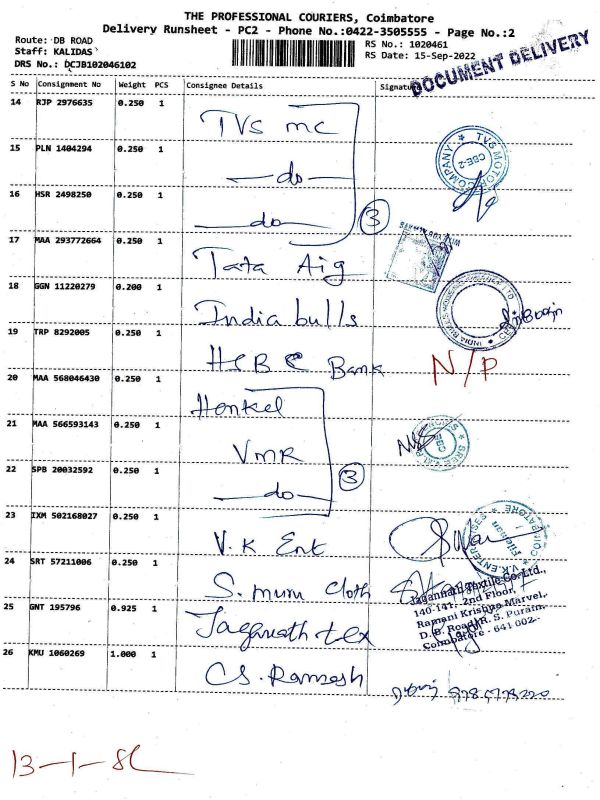 THE PROFESSIONAL COURIERS, Coimbatore
Delivery Runsheet - PC2 - Phone No.:0422-3505555 - Page No.:2
Route: DB ROAD
Staff: KALIDAS
DRS No.: DCJB102046102
RS No.: 1020461
RS Date: 15-Sep-2022
DOCUMENT DELIVERY
S No Consignment No Weight PCS Consignee Details Signature
14 RJP 2976635 0.250 1 TVS mc
TVS MOTOR COMPANY * CBE-2 *
15 PLN 1404294 0.250 1 —do—
16 HSR 2498250 0.250 1 —do—
3
17 MAA 293772664 0.250 1 Tata Aig
18 GGN 11220279 0.200 1 India bulls
19 TRP 8292005 0.250 1 HSBC Bank N/P
20 MAA 568046430 0.250 1 Henkel
21 MAA 566593143 0.250 1 VMR
22 SPB 20032592 0.250 1 —do—
3
23 IXM 502168027 0.250 1 V.K. Ent
V.K. ENTERPRISES * COIMBATORE
24 SRT 57211006 0.250 1 S. muru cloth
Jagannath Textile Co. Ltd.,
140-141, 2nd Floor,
Ramani Krishna Marvel,
D. B. Road, R. S. Puram,
Coimbatore - 641 002.
25 GNT 195796 0.925 1 Jaganath tex
26 KMU 1060269 1.000 1 CS. Ramesh